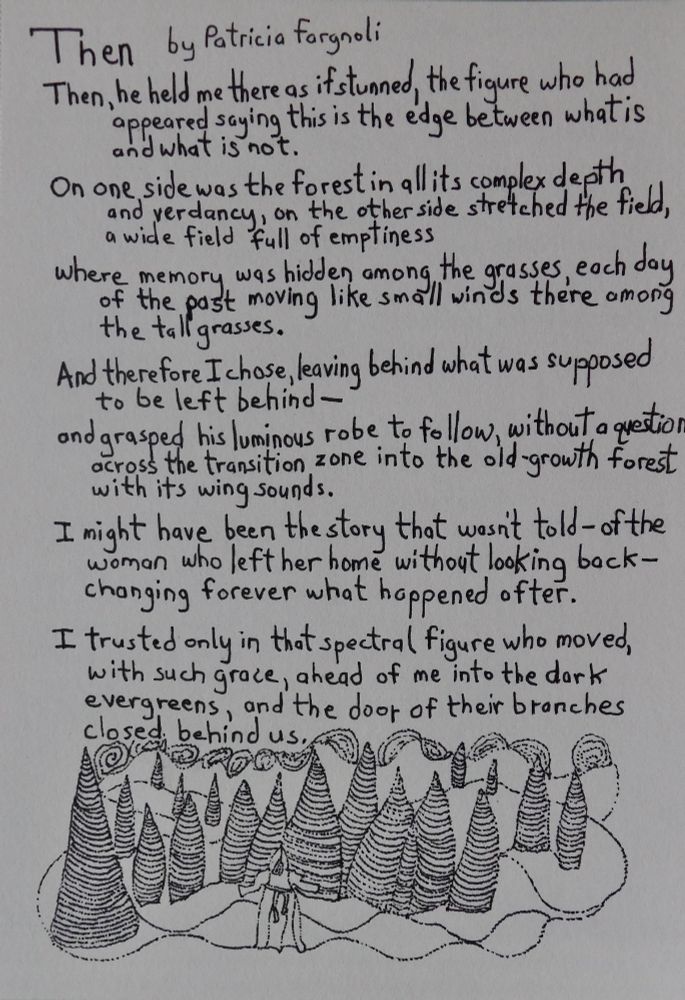 Then by Patricia Fargnoli
Then, he held me there as if stunned, the figure who had
appeared saying this is the edge between what is
and what is not.
On one side was the forest in all its complex depth
and verdancy, on the other side stretched the field,
a wide field full of emptiness
where memory was hidden among the grasses, each day
of the past moving like small winds there among
the tall grasses.
And therefore I chose, leaving behind what was supposed
to be left behind—
and grasped his luminous robe to follow, without a question
across the transition zone into the old-growth forest
with its wing sounds.
I might have been the story that wasn't told—of the
woman who left her home without looking back—
changing forever what happened after.
I trusted only in that spectral figure who moved,
with such grace, ahead of me into the dark
evergreens, and the door of their branches
closed behind us.